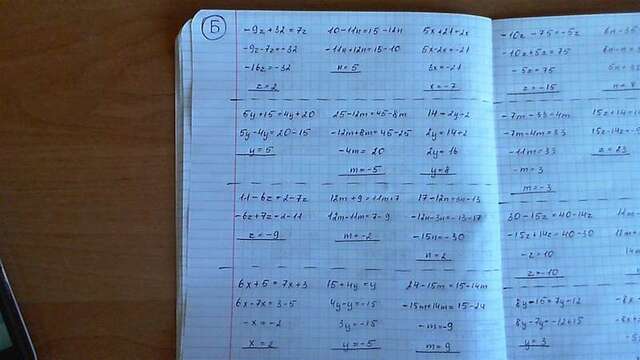 Б
-9z+32=7z
-9z-7z=-32
-16z=-32
z=2
10-11n=15-12n
-11n+12n=15-10
n=5
5x+21=2x
5x-2x=-21
3x=-21
x=-7
-10z-75=-5z
-10z+5z=75
-5z=75
z=-15
5y+15=4y+20
5y-4y=20-15
y=5
25-12m=45-8m
-12m+8m=45-25
-4m=20
m=-5
14=2y-2
2y=14+2
2y=16
y=8
-7m-33=4m
-7m-4m=33
-11m=33
-m=3
m=-3
z=23
11-6z=2-7z
-6z+7z=2-11
z=-9
12m+9=11m+7
12m-11m=7-9
m=-2
17-12n=3n-13
-12n-3n=-13-17
-15n=-30
n=2
30-15z=40-14z
-15z+14z=40-30
-z=10
z=-10
6x+5=7x+3
6x-7x=3-5
-x=-2
x=2
15+4y=y
4y-y=-15
3y=-15
y=-5
24-15m=15-14m
-15m+14m=15-24
-m=-9
m=9
8y-15=7y-12
8y-7y=-12+15
y=3